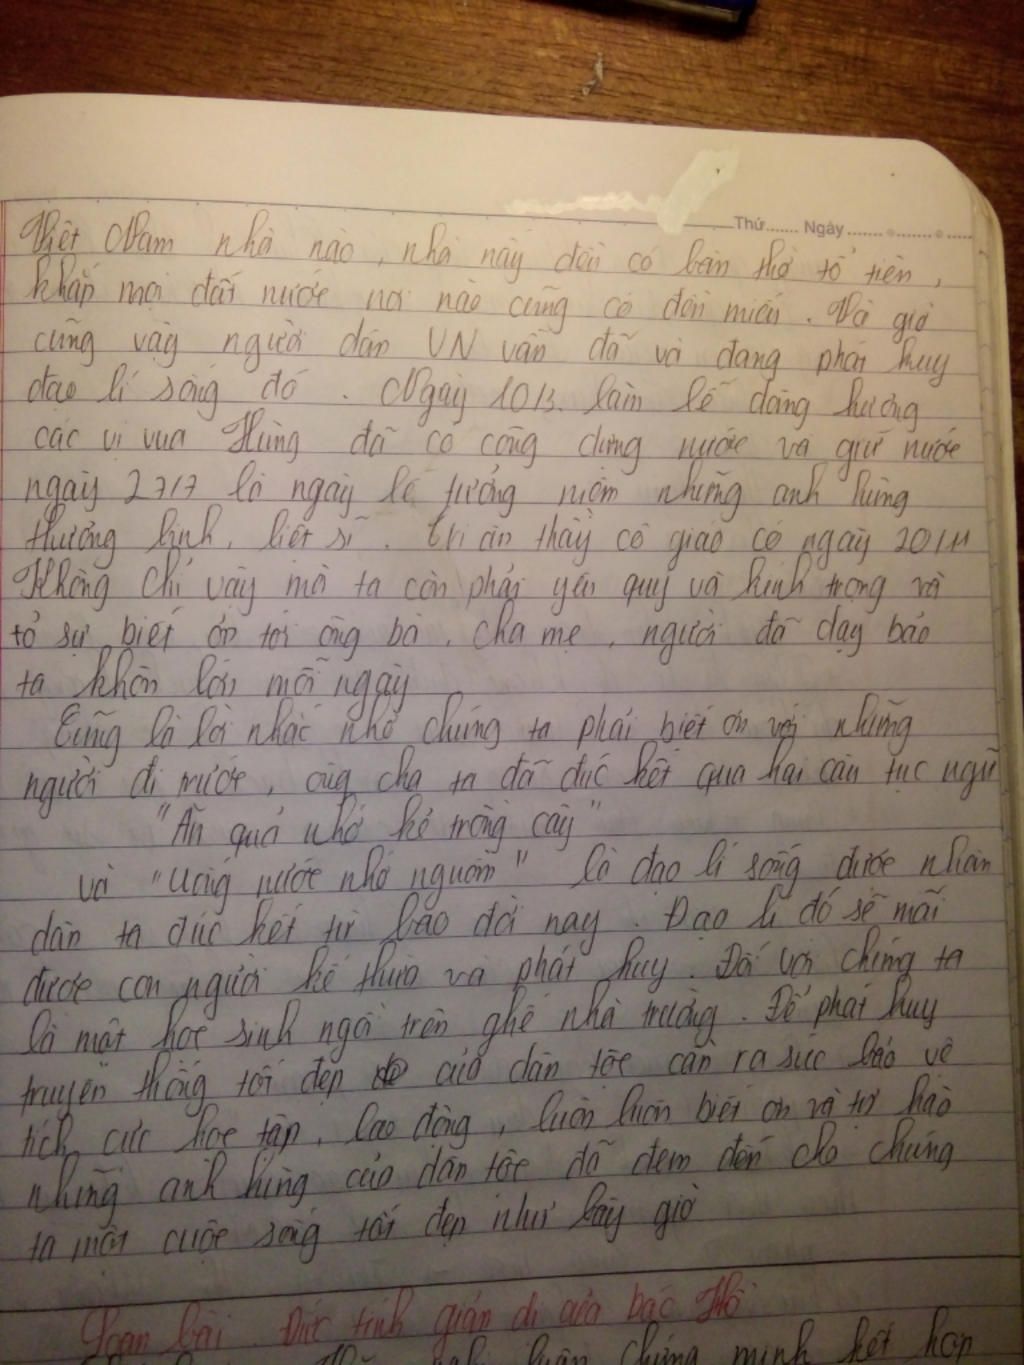 Thứ...... Ngày ......................
Việt Nam nhà nào, nhà nấy đều có bàn thờ tổ tiên,
khắp mọi đất nước nơi nào cũng có đền miếu. Và giờ
cũng vậy người dân VN vẫn đã và đang phát huy
đạo lí sống đó. Ngày 10/3. làm lễ dâng hương
các vị vua Hùng đã có công dựng nước và giữ nước
ngày 27/7 là ngày lễ tưởng niệm những anh hùng
thương binh, liệt sĩ. Tri ân thầy cô giáo có ngày 20/11
Không chỉ vậy mà ta còn phải yêu quý và kính trọng và
tỏ sự biết ơn tới ông bà, cha mẹ, người đã dạy bảo
ta khôn lớn mỗi ngày
Cũng là lời nhắc nhở chúng ta phải biết ơn với những
người đi trước, ông cha ta đã đúc kết qua hai câu tục ngữ
"Ăn quả nhớ kẻ trồng cây"
và "Uống nước nhớ nguồn" là đạo lí sống được nhân
dân ta đúc kết từ bao đời nay. Đạo lí đó sẽ mãi
được con người kế thừa và phát huy. Đối với chúng ta
là một học sinh ngồi trên ghế nhà trường. Để phát huy
truyền thống tốt đẹp của dân tộc cần ra sức bảo vệ
tích cực học tập, lao động, luôn luôn biết ơn và tự hào
những anh hùng của dân tộc đã đem đến cho chúng
ta một cuộc sống tốt đẹp như bây giờ
Soạn bài. Đức tính giản dị của bác Hồ
luận chứng minh kết hợp